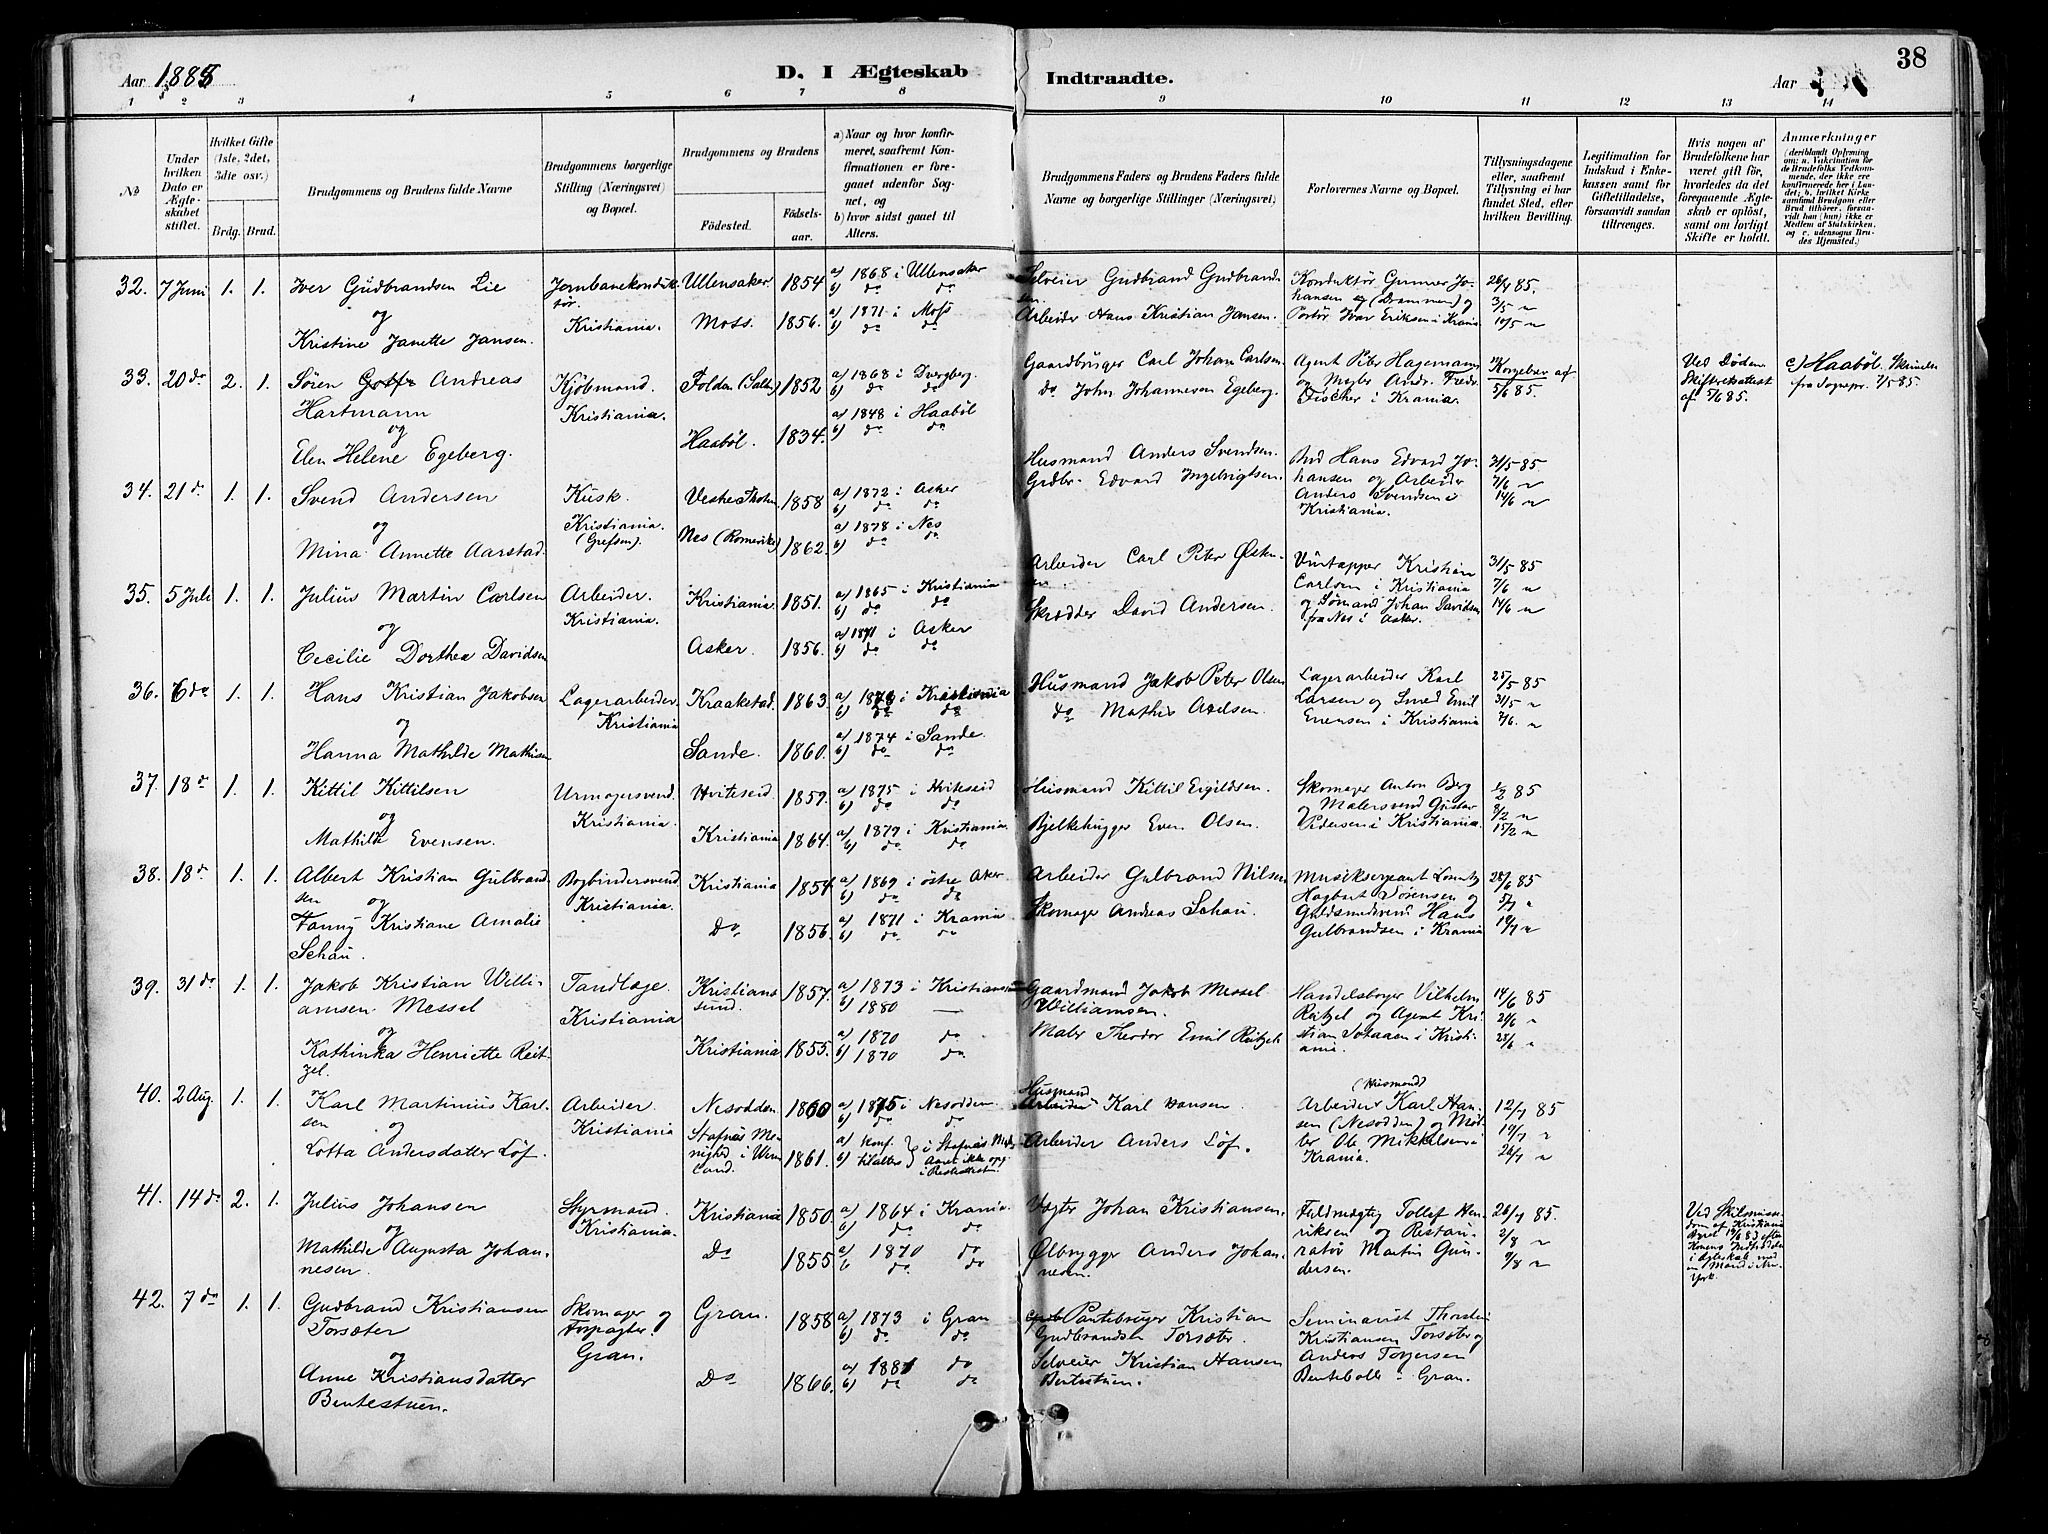 Aar 1885
D. I Ægteskab
Indtraadte.
Aar
38
1 2 3 4 5 6 7 8 9 10 11 12 13 14
No
Under hvilken Dato er Ægteskabet stiftet.
Hvilket Gifte (1ste, 2det, 3die osv.)
Brdg. Brud.
Brudgommens og Brudens fulde Navne
Brudgommens borgerlige Stilling (Næringsvei) og Bopæl.
Brudgommens og Brudens
Fødested.
Fødselsaar.
a) Naar og hvor konfirmeret, saafremt Konfirmationen er foregaaet udenfor Sognet, og
b) hvor sidst gaaet til Alters.
Brudgommens Faders og Brudens Faders fulde Navne og borgerlige Stillinger (Næringsvei)
Forlovernes Navne og Bopæl.
Tillysningsdagene eller, saafremt Tillysning ei har fundet Sted, efter hvilken Bevilling.
Legitimation for Indskud i Enkekassen samt for Giftetilladelse, forsaavidt saadan tiltrænges.
Hvis nogen af Brudefolkene har været gift før, hvorledes da det foregaaende Ægteskab er opløst, samt om lovligt Skifte er holdt.
Anmærkninger
(deriblandt Oplysning om: a. Vakcination for de Brudefolks Vedkommende, der ikke ere konfirmerede her i Landet; b. hvilket Kirkesamfund Brudgom eller Brud tilhører, forsaavidt han (hun) ikke er Medlem af Statskirken, og c. udensogns Brudes Hjemsted.)
32. 7 Juni 1. 1. Iver Gudbrandsen Lie
og
Kristine Janette Jansen.
Jernbanekonduktør. Kristiania.
Ullensaker 1854 a) 1868 i Ullensaker b) do do
Moss. 1856. a) 1871 i Moss b) do do
Selveier Gudbrand Gudbrandsen.
Arbeider Hans Kristian Jansen.
Konduktør Gunner Johansen (Drammen) og Portør Ivar Eriksen i Krania
26/4 85. 3/5 " 10/5 "
33. 20 do 2. 1. Søren Andreas
Hartmann
og
Elen Helene Egeberg.
Kjøbmand. Kristiania.
Folden (Salten) 1852 a) 1868 i Dverberg. b) do do
Haabøl. 1834. a) 1848 i Haabøl b) do do
Gaardbruger Carl Johan Carlsen
do John Johannesen Egeberg.
Agent Peter Hagemann og Mægler Andr. Fredr. Discher i Krania.
Kongebrev af 5/6 85.
Ved Døden Skifteretsattest af 5/6 85.
c) Haabøl.
fra Sognepr. 7/5 85.
34. 21 do 1. 1. Svend Andersen
og
Mina Annette Aarstad.
Kusk. Kristiania. (Grefsen).
Vestre Thoten 1858 a) 1872 i Asker b) do do
Nes (Romerike) 1862. a) 1878 i Nes b) do do
Husmand Anders Svendsen.
Grdbr. Edvard Ingebrigtsen.
Hans Edvard Johansen og Arbeider Anders Svendsen i Kristiania.
31/5 85. 7/6 " 14/6 "
35. 5 Juli 1. 1. Julius Martin Carlsen
og
Cecilie Dorthea Davidsen
Arbeider. Kristiania.
Kristiania 1851. a) 1865 i Kristiania b) do do
Asker. 1856. a) 1871 i Asker b) do do
Arbeider Carl Peter
Skrædder David Andersen.
Vintapper Kristian Carlsen i Kristiania og Sømand Johan Davidsen fra Nes i Asker.
31/5 85 7/6 " 14/6 "
36. 6 do 1. 1. Hans Kristian Jakobsen
og
Hanna Mathilde Mathisen
Lagerarbeider Kristiania
Kraakstad. 1863. a) 1878 i Kristiania b) do do
Sande. 1860. a) 1874 i Sande. b) do do
Husmand Jakob Peter Olsen
do Mathis Axelsen.
Lagerarbeider Karl Larsen og Smed Emil Evensen i Kristiania
25/5 85 31/5 " 7/6. "
37. 18 do 1. 1. Kittil Kittilsen
og
Mathilde Evensen.
Urmagersvend. Kristiania.
Hviteseid 1859. a) 1875 i Hviteseid b) do do
Kristiania 1864. a) 1879 i Kristiania. b) do do
Husmand Kittil Eigildsen.
Bjelkehugger Even Olsen.
Skomager Anton Berg og Malersvend Gustav Pedersen i Kristiania.
1/2 85 8/2 " 15/2 "
38. 18 do 1. 1. Albert Kristian Gulbrandsen
og
Fanny Kristiane Amalie
Schau.
Bogbindersvend Kristiania.
Kristiania 1854 a) 1869 i østre Aker b) do do
Do 1856. a) 1871 i Krania b) do do
Arbeider Gulbrand Nilsen
Skomager Andreas Schau.
Musiksergeant Lorentz Hagbart Sørensen og Guldsmedsvend Hans Gulbrandsen i Krania
28/6 85 5/7 " 19/7 "
39. 31 do 1. 1. Jakob Kristian Williamsen Messel
og
Kathinka Henriette Reitzel.
Tandlæge. Kristiania
Kristianssund. 1857. a) 1873 i Kristianssund b) 1880 —
Kristiania 1855. a) 1870 do b) 1870 do
Gaardmand Jakob Messel Williamsen.
Maler Theodor Emil Reitzel
Handelsborger Vilhelm Reitzel og Agent Kristian Johansen i Kristiania.
14/6 85 21/6 " 28/6 "
40. 2 Aug. 1. 1. Karl Martinius Karlsen
og
Lotta Andersdatter Løf.
Arbeider. Kristiania
Nesodden 1860 a) 1875 i Nesodden b) do do
Stafnes Menighed i Wermland. 1861. a) konf. b) til alters i Stafnæs Men. Aaret ikke opg. i
Husmand
Arbeider Karl Hansen.
Arbeider Anders Löf.
(Husmand)
Arbeider Karl Hansen (Nesodden) og Møbler Ole Mikkelsen i Krania.
12/7 85 19/7 " 26/7 "
41. 14 do 2. 1. Julius Johansen
og
Mathilde Augusta Johannesen.
Styrmand. Kristiania.
Kristiania 1850. a) 1864 i Krania. b) do do
Do 1855 a) 1870 do b) do do
Vægter Johan Kristiansen.
Ølbrygger Anders Johannesen.
Fuldmægtig Tollef Henriksen og Restauratør Martin Gundersen.
26/7 85. 2/8 " 9/8 "
Ved Skilsmissedom af Kristiania Byret efter Konens Indtræden i Ægteskab med en Mand i New York.
42. 7 do 1. 1. Gudbrand Kristiansen
Torsæter
og
Anne Kristiansdatter
Bentestuen.
Skomager og Forpagter. Gran.
Gran. 1858 a) 1873 i Gran b) do do
Do 1866. a) 1881 do b) do do
Plantebruger Kristian Gudbrandsen Torsæter.
Selveier Kristian Hansen Bentestuen.
Seminarist Thorstein Kristiansen Torsæter og Anders Torgersen i Gran.